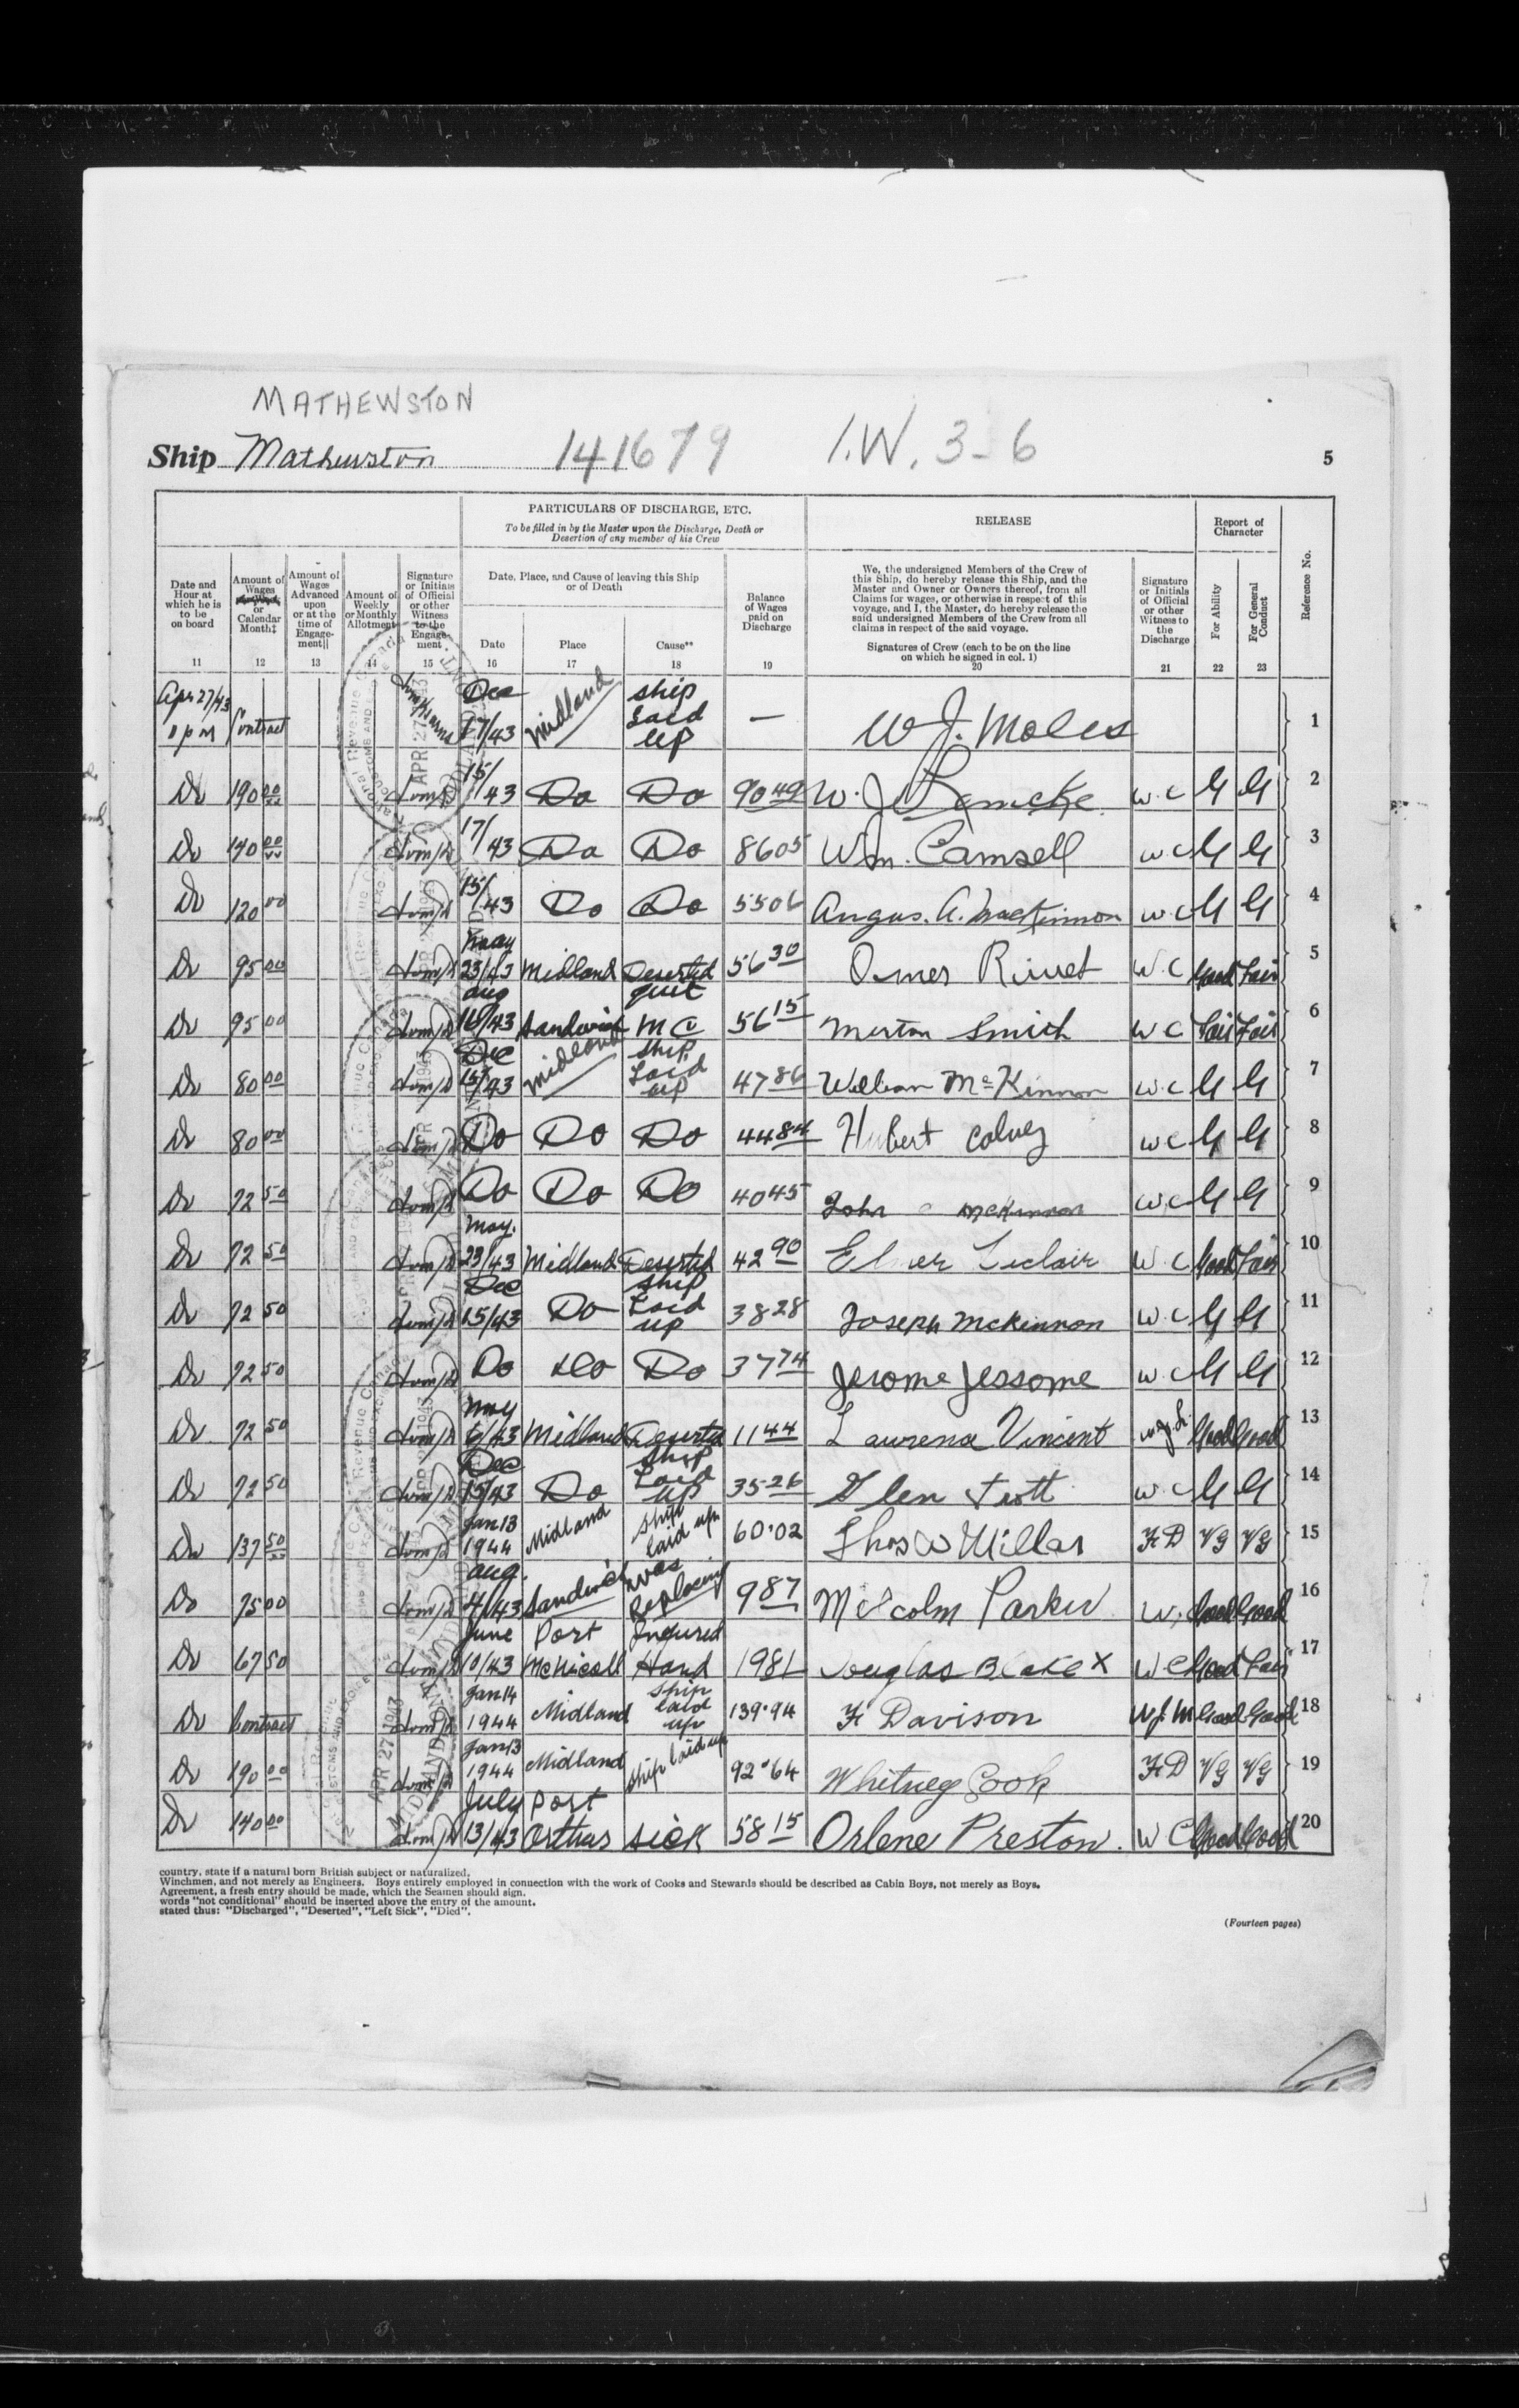 MATHEWSTON
Ship Mathewston 141679 I.W. 3-6 5
PARTICULARS OF DISCHARGE, ETC.
To be filled in by the Master upon the Discharge, Death or
Desertion of any member of his Crew
RELEASE
Report of
Character
Reference No.
Date and
Hour at
which he is
to be
on board
11
Amount of
Wages
or
Calendar
Month‡
12
Amount of
Wages
Advanced
upon
or at the
time of
Engage-
ment||
13
Amount of
Weekly
or Monthly
Allotment
14
Signature
or Initials
of Official
or other
Witness
to the
Engage-
ment
15
Date, Place, and Cause of leaving this Ship
or of Death
Date
16
Place
17
Cause**
18
Balance
of Wages
paid on
Discharge
19
We, the undersigned Members of the Crew of
this Ship, do hereby release this Ship, and the
Master and Owner or Owners thereof, from all
Claims for wages, or otherwise in respect of this
voyage, and I, the Master, do hereby release the
said undersigned Members of the Crew from all
claims in respect of the said voyage.
Signatures of Crew (each to be on the line
on which he signed in col. 1)
20
Signature
or Initials
of Official
or other
Witness to
the
Discharge
21
For Ability
22
For General
Conduct
23
Apr 27/43 1 pm Contract Dec 17/43 Midland Ship Laid up — W J. Moles 1
Do 190 00 15/43 Do Do 90 49 W. J. Lemcke W.C G G 2
Do 140 00 17/43 Do Do 86 05 Wm. Camsell W C G G 3
Do 120 00 15/43 Do Do 55 06 Angus. A. MacKinnon W.C G G 4
Do 95 00 May 23/43 Midland Deserted 56 30 Omer Rivet W.C Good Fair 5
Do 95 00 Aug 16/43 Sandwich quit 56 15 Merton Smith W C Fair Fair 6
Do 80 00 Dec 15/43 Midland Ship Laid up 47 86 William McKinnon W.C G G 7
Do 80 00 Do Do Do 44 84 Hubert W C G G 8
Do 72 50 Do Do Do 40 45 John McKinnon W.C G G 9
Do 72 50 May. 23/43 Midland Deserted 42 90 Elmer Leclair W.C Good Fair 10
Do 72 50 Dec 15/43 Do Ship Laid up 38 28 Joseph McKinnon W.C G G 11
Do 72 50 Do Do Do 37 74 Jerome Jessome W.C G G 12
Do 72 50 May 6/43 Midland Deserted 11 44 Laurena Vincent W.J.L. Good Good 13
Do 72 50 Dec 15/43 Do Ship Laid up 35 26 Glen Trott W.C G G 14
Do 137 50 Jan 13 1944 Midland Ship laid up 60.02 Thos W Millar F D VG VG 15
Do 75 00 Aug. 4/43 Sandwich was Replacing 9 87 Malcolm Parker W. Good Good 16
Do 67 50 June 10/43 Port McNicoll Injured Hand 19 81 Douglas Blake X W C Good Fair 17
Do Contract Jan 14 1944 Midland Ship laid up 139.94 F Davison W J. M Good Good 18
Do 190 00 Jan 13 1944 Midland Ship laid up 92.64 Whitney Cook F D VG VG 19
Do 140 00 July 13/43 Port Arthur sick 58 15 Orlene Preston. W C Good Good 20
country, state if a natural born British subject or naturalized.
Winchmen, and not merely as Engineers. Boys entirely employed in connection with the work of Cooks and Stewards should be described as Cabin Boys, not merely as Boys.
Agreement, a fresh entry should be made, which the Seamen should sign.
words "not conditional" should be inserted above the entry of the amount.
stated thus: "Discharged", "Deserted", "Left Sick", "Died".
(Fourteen pages)